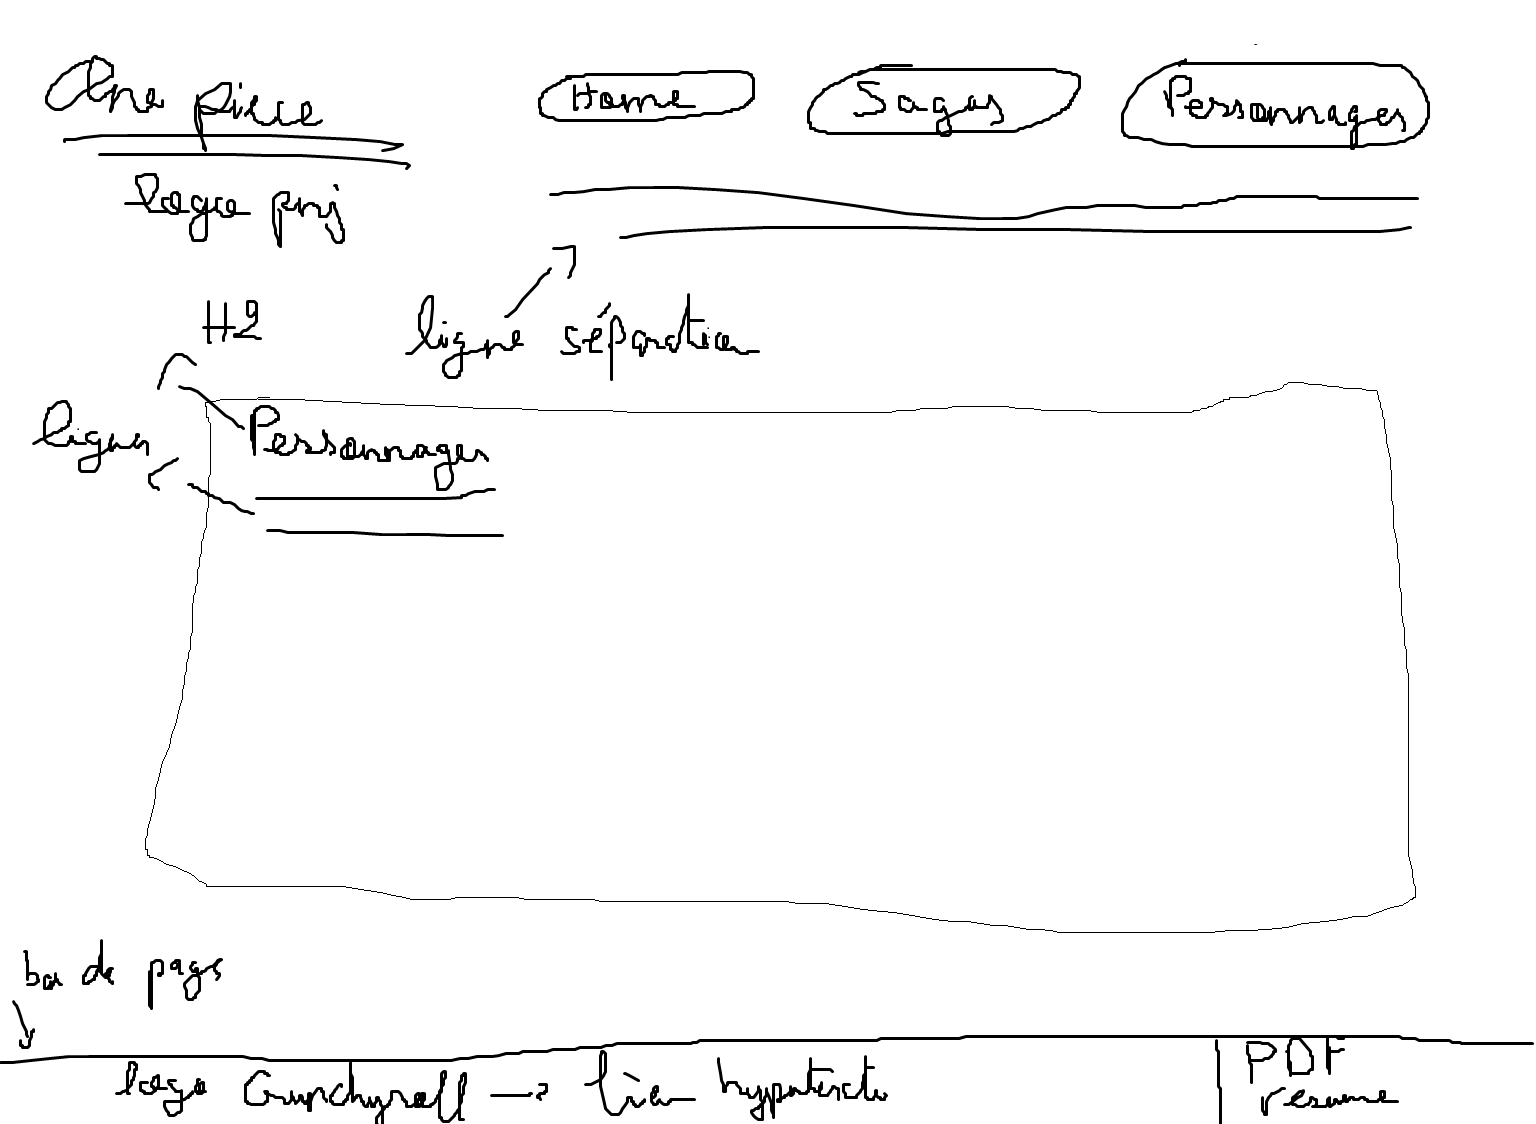 One piece
Home
Sagas
Personnages
logo prj
H2
ligne séparation
ligne
Personnages
bas de page
logo Crunchyroll → lien hypertexte
PDF
resume